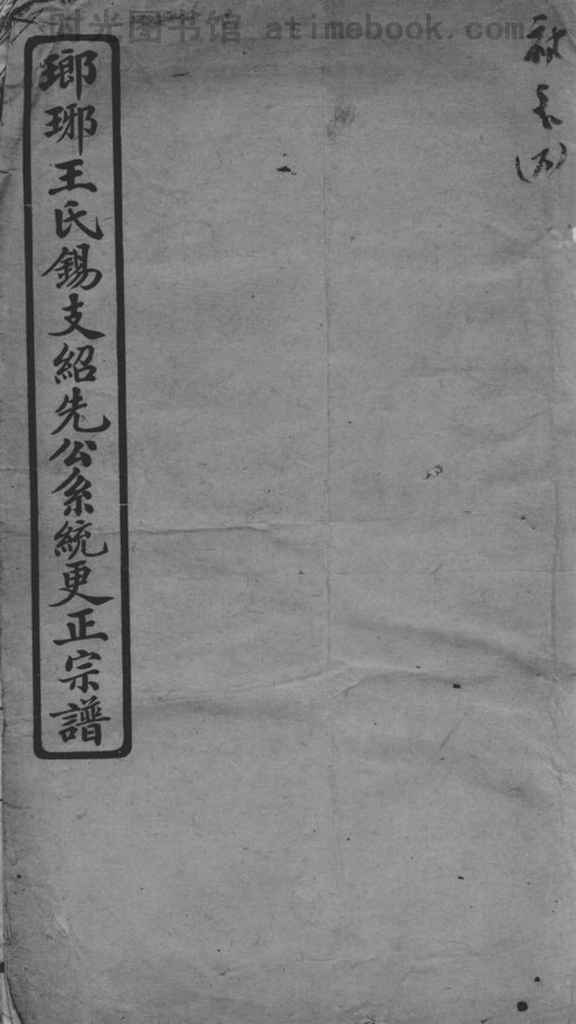 时光图书馆 atimebook.com
瑯琊王氏錫支紹先公系統更正宗譜